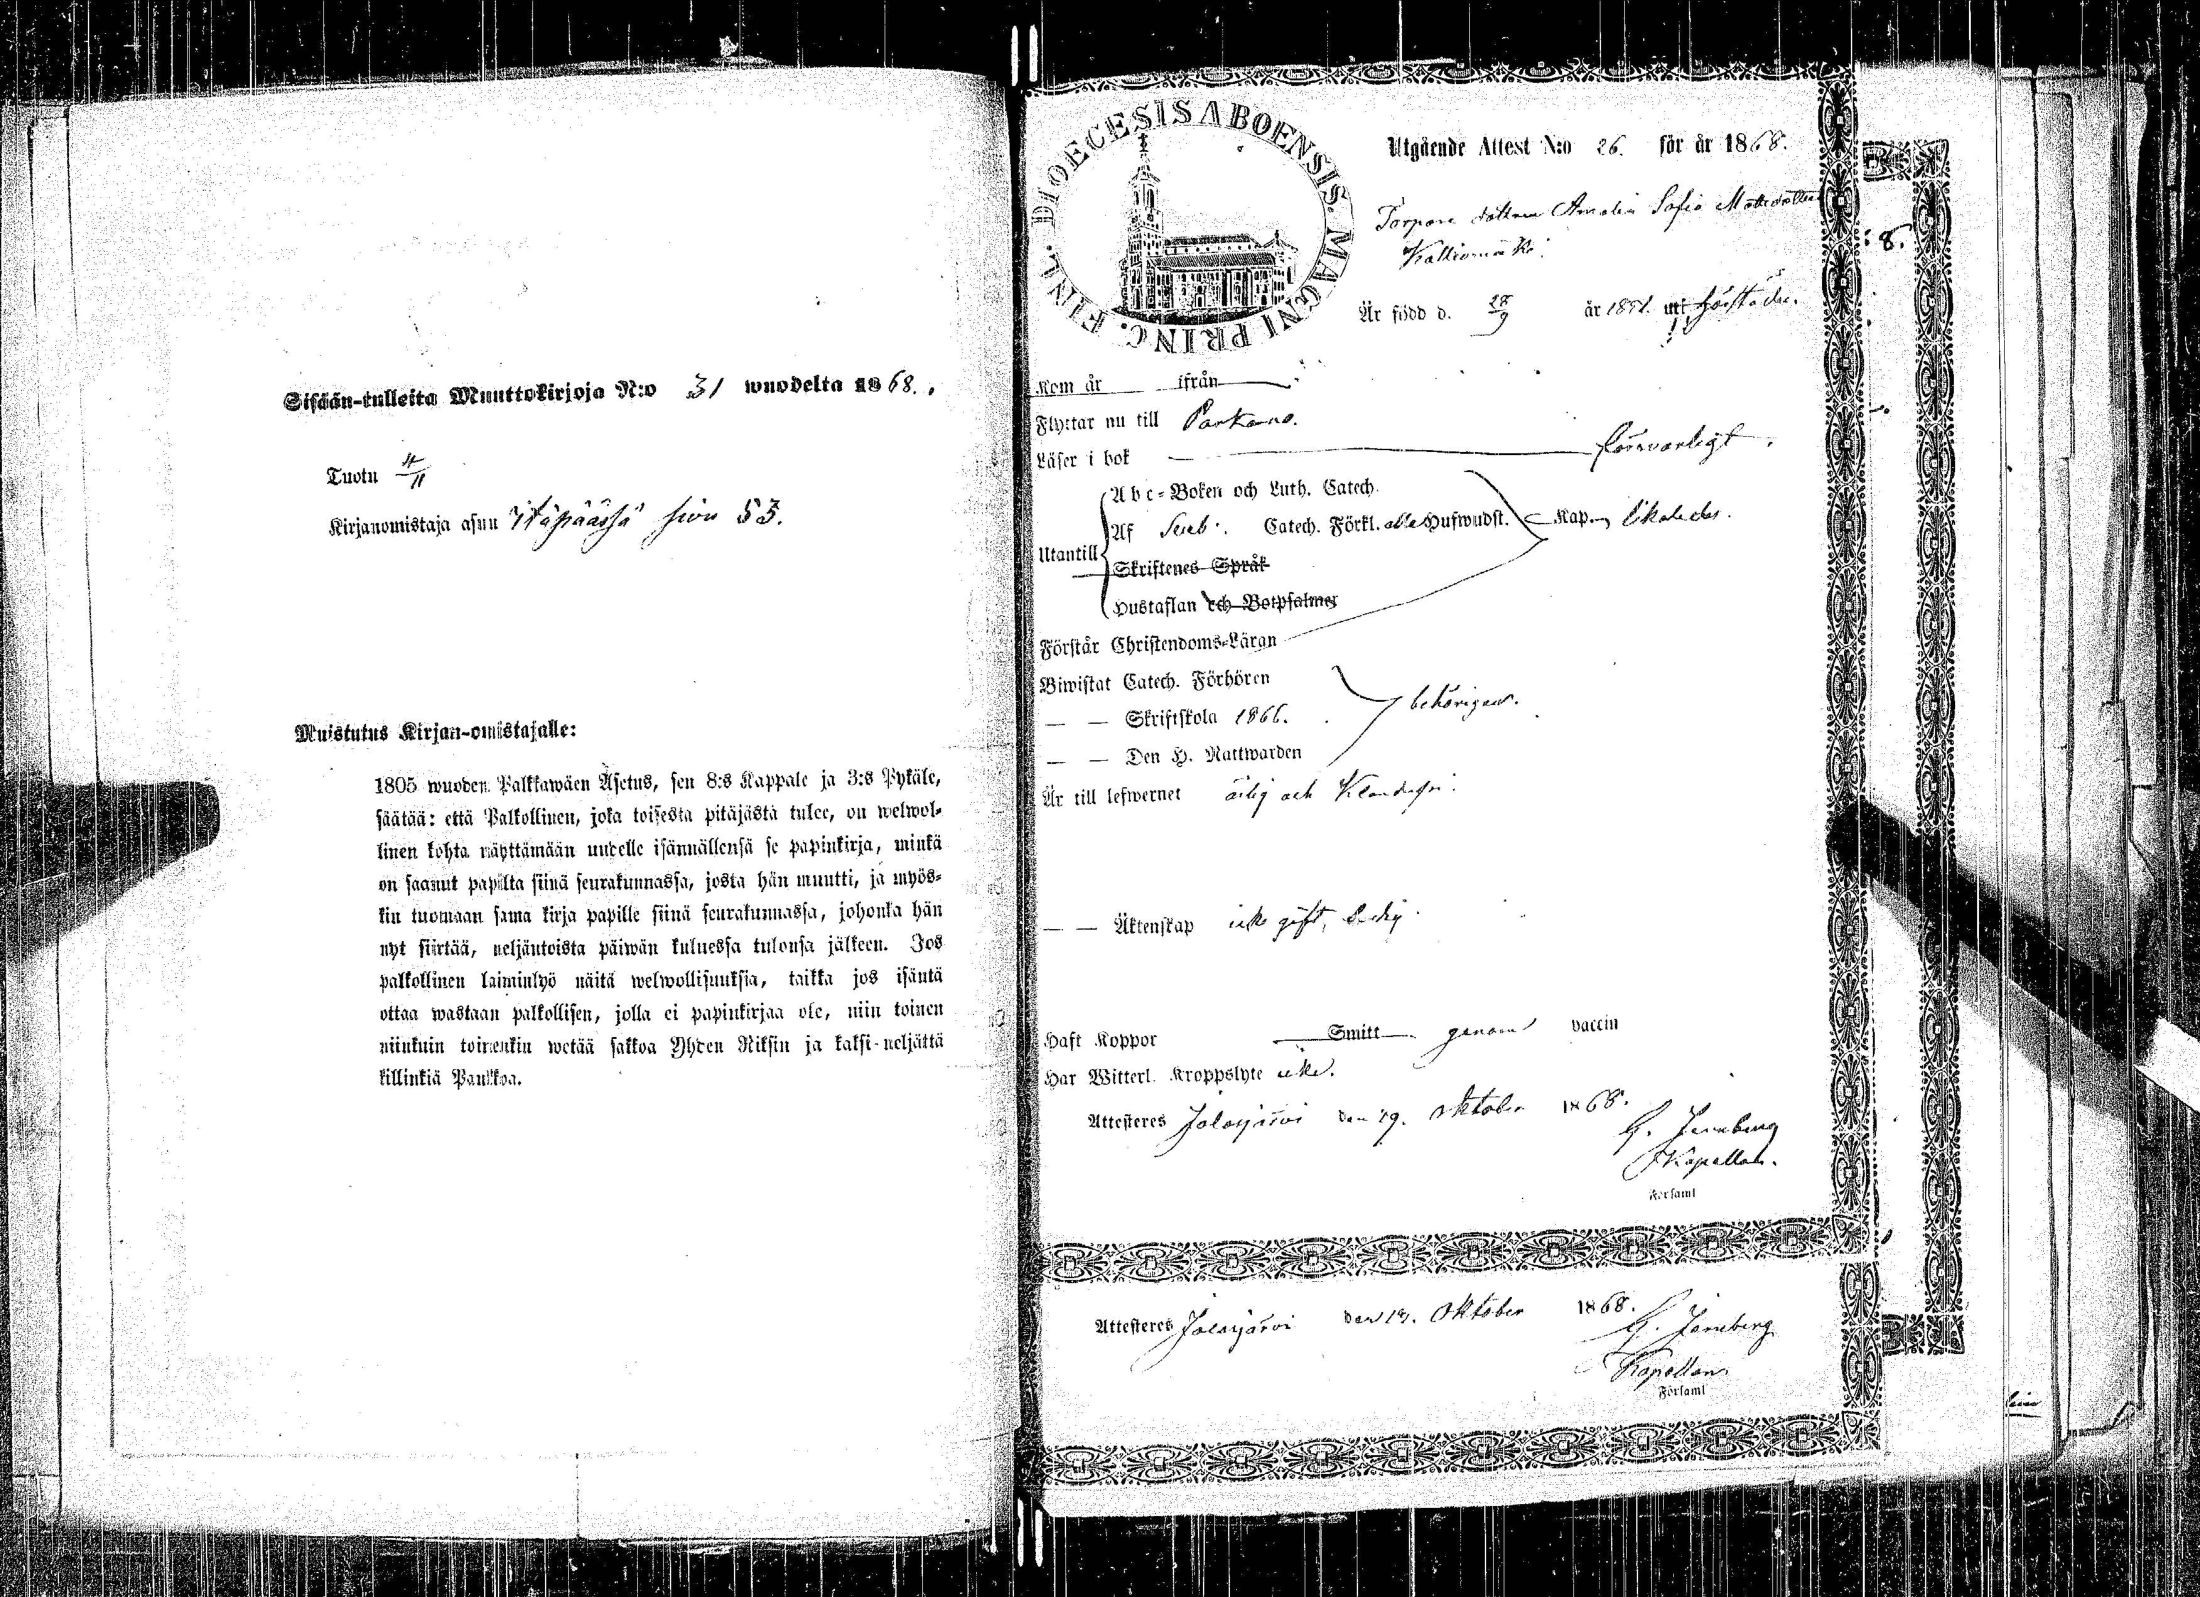 Sisään-tulleita Muuttokirjoja N:o 31 wuodelta 1868.
Tuotu 4/11
Kirjanomistaja asuu Itäpäässä sivu 53.
Muistutus Kirjan-omistajalle:
1805 wuoden Palkkawäen Asetus, sen 8:s Kappale ja 3:s Pykäle,
säätää: että Palkollinen, joka toisesta pitäjästä tulee, on welwol-
linen kohta näyttämään uudelle isännällensä se papinkirja, minkä
on saanut papilta siinä seurakunnassa, josta hän muutti, ja myös-
kin tuomaan sama kirja papille siinä seurakunnassa, johonka hän
nyt siirtää, neljäntoista päiwän kuluessa tulonsa jälkeen. Jos
palkollinen laiminlyö näitä welwollisuuksia, taikka jos isäntä
ottaa wastaan palkollisen, jolla ei papinkirjaa ole, niin toinen
niinkuin toinenkin wetää sakkoa Yhden Riksin ja kaksi-neljättä
killinkiä Pankkoa.
DIOECESIS ABOENSIS. MAGNI PRINC. FINL.
Utgående Attest N:o 26. för år 1868.
Torpare dottren Amalia Sofia Mattsdotter
Kalliomäki.
Är född d. 28/9 år 1851. uti
Kom år ifrån
Flyttar nu till Parkano.
Läser i bok försvarligt.
Abc-Boken och Luth. Catech.
Utantill Af Sveb. Catech. Förkl. alla Hufwudst. Kap. likaledes.
Skriftenes Språk
Hustaflan och Botpsalmer
Förstår Christendoms-Läran
Biwistat Catech. Förhören
— — Skriftskola 1866. behörigen.
— — Den H. Nattwarden
Är till lefwernet ärlig och
— — Äktenskap icke gift, ledig.
Haft Koppor Smitt genom vaccin
Har Witterl. Kroppslyte icke.
Attesteres Jalasjärvi den 19. Oktober 1868.
Kapellan.
Församl
Attesteres Jalasjärvi den 19. Oktober 1868.
Kapellan
Församl
8.